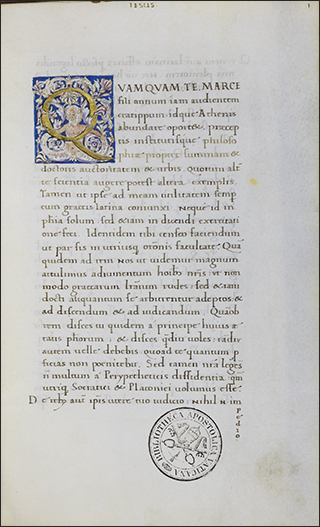 IESUS
QVAMQVAM TE MARCE
fili annum iam audientem
cratippum idque Athenis
abundare oportet præcep
tis institutisque philoso
phiæ propter summam &
doctoris auctoritatem & urbis quorum alter
te scientia augere potest altera exemplis
Tamen ut ipse ad meam utilitatem semp
cum græcis latina coniunxi Neque id in
phia solum sed & iam in dicendi exercitati
one feci Idem tibi censeo faciendum
ut par sis in utriusque orōnis facultate Quā
quidem ad rem nos ut uidemur magnum
attulimus adiumentum hoībꝰ nrīs ut non
modo græcarum lrārum rudes sed & iam
docti aliquantum se arbitrentur adeptos &
ad discendum & ad iudicandum Quāob
rem disces tu quidem a principe huius æ
tatis phorum & disces qdiu uoles tādiu
autem uelle debebis quoad te quantum p
ficias non pœnitebit Sed tamen nrā legēs
nō multum a Perypatheticis dissidentia qm
utriq Socratici & Platonici uolumus esse
De rebꝰ aut ipīs utere tuo iudicio nihil n im
pedio
BIBLIOTHECA APOSTOLICA VATICANA